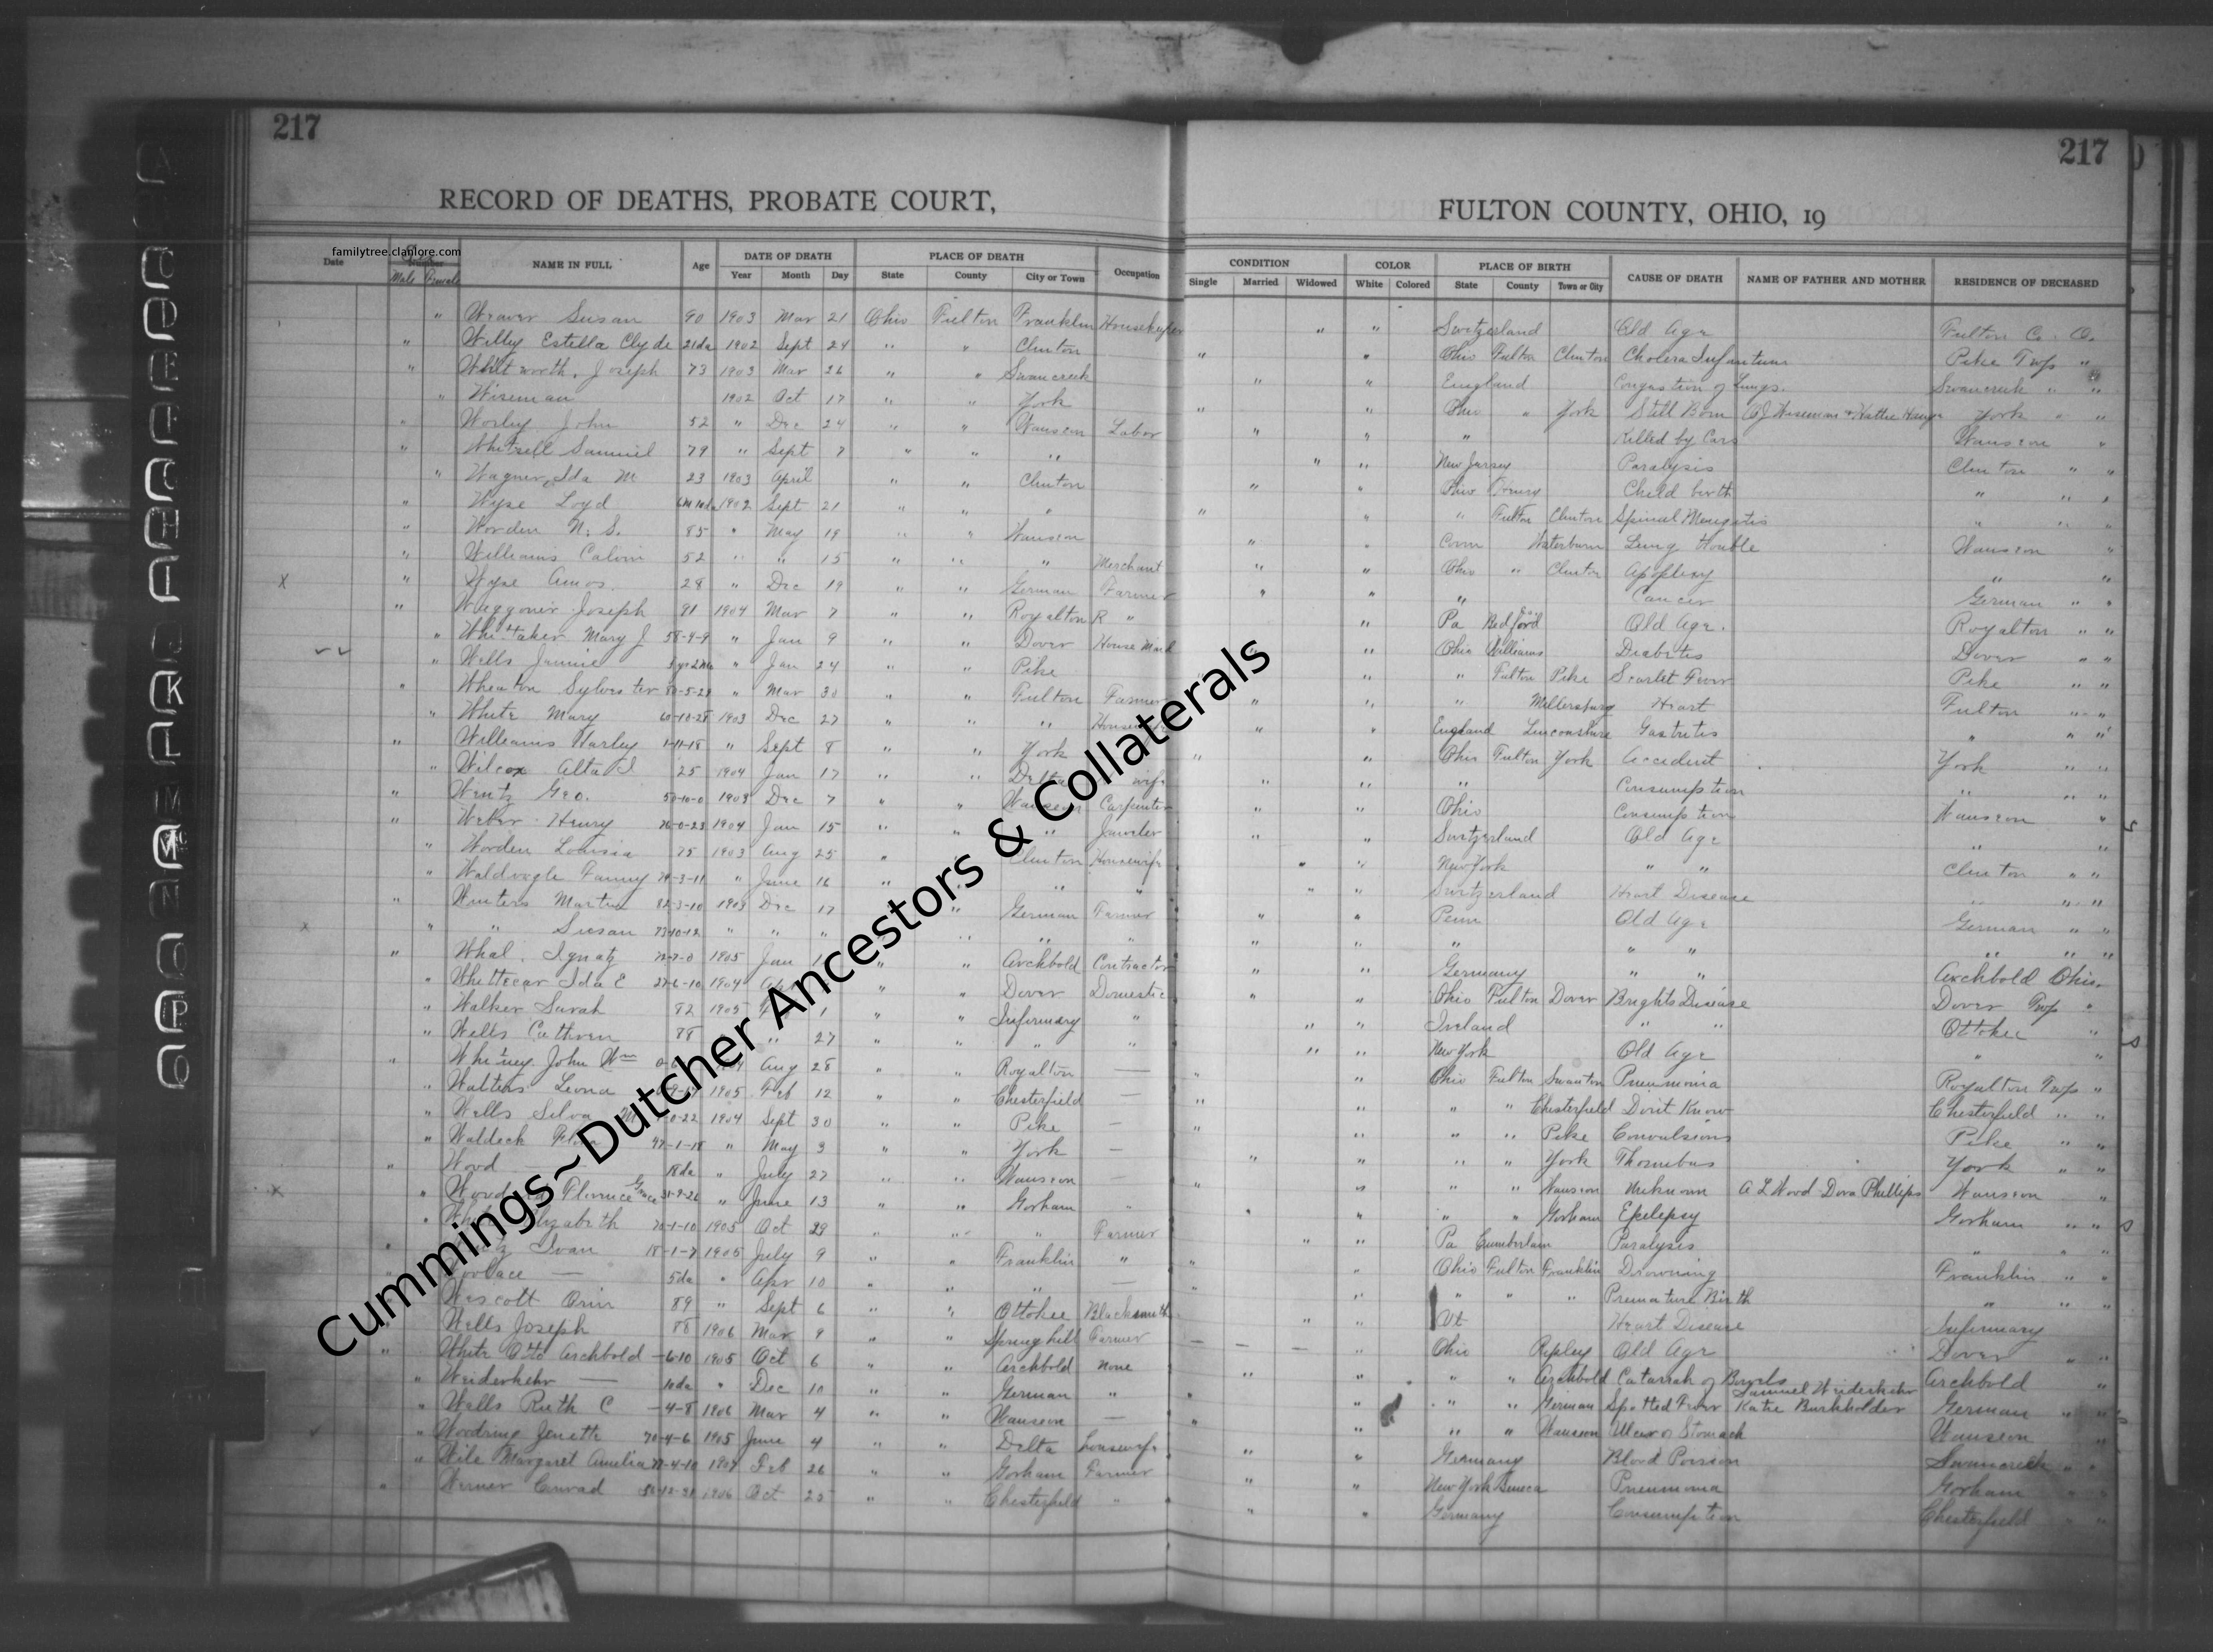 217
217
RECORD OF DEATHS, PROBATE COURT,
FULTON COUNTY, OHIO, 19
familytree.clanlore.com
Date Number NAME IN FULL Age DATE OF DEATH PLACE OF DEATH Occupation CONDITION COLOR PLACE OF BIRTH CAUSE OF DEATH NAME OF FATHER AND MOTHER RESIDENCE OF DECEASED
Male Female Year Month Day State County City or Town Single Married Widowed White Colored State County Town or City
" Weaver Susan 90 1903 Mar 21 Ohio Fulton Franklin Housekeeper " " Switzerland Old Age Fulton Co. O.
" Willy Estella Clyde 21da 1902 Sept 24 " " Clinton " " Ohio Fulton Clinton Cholera Infantum Pike Twp "
" Whitworth, Joseph 73 1903 Mar 26 " " Swancreek " " England Congestion of Lungs. Swancreek " "
" Wiseman 1902 Oct 17 " " York " " Ohio " York Still Born York " "
" Worley John 52 " Dec 24 " " Wauseon Labor " " " Killed by Cars Wauseon "
" Samuel 79 " Sept 7 " " " " " New Jersey Paralysis Clinton " "
" Wagner, Ida M 23 1903 April " " Clinton " " Ohio Henry Child birth " " "
" Wyse Loyd 1902 Sept 21 " " " " " " Fulton Clinton Spinal Mengetis " " "
" Worden N. S. 85 " May 19 " " Wauseon " " Conn Waterburn Lung trouble Wauseon "
" Williams Calvin 52 " " 15 " " " Merchant " " Ohio " Clinton Apoplexy " "
X " Wyse Amos 28 " Dec 19 " " German Farmer " " " Cancer German " "
" Waggoner Joseph 81 1904 Mar 7 " " Royalton R " " Pa Bedford Old Age. Royalton " "
" Whittaker Mary J 58-4-9 " Jan 9 " " Dover House Maid " Ohio Williams Diabetis Dover " "
" Wells Jennie 3yr 2mo " Jan 24 " " Pike " " Fulton Pike Scarlet Fever Pike " "
" Wheaton Sylvester " Mar 30 " " Fulton Farmer " " " Millersburg Heart Fulton " "
" White Mary 60-10-28 1903 Dec 27 " " " " " England Linconshire Gastritis " " "
" Williams Harley 1-11-18 " Sept 8 " " York " " Ohio Fulton York Accident York " "
" Wilcox Alta 25 1904 Jan 17 " " Delta wife " " " Consumption " " "
" Wentz Geo. 50-10-0 1903 Dec 7 " " Wauseon Carpenter " " Ohio Consumption Wauseon "
" Weber Henry 76-0-23 1904 Jan 15 " " " Jeweler " " Switzerland Old Age " "
" Worden Louisia 75 1903 Aug 25 " Clinton Housewife " " New York " " Clinton " "
" Waldvogle Fanny " June 16 " " " " " Switzerland Heart Disease " " "
" Winters Martin 82-3-10 1903 Dec 17 " German Farmer " " Penn Old Age German " "
X " " Susan 73-10-12 " " " " " " " " " " " " " "
" Whal. Ignatz 1905 Jan " " Archbold Contractor " " Germany " " Archbold Ohio.
" Whittecar Ida E 27-6-10 1904 " " Dover Domestic " " Ohio Fulton Dover Brights Disease Dover Twp "
" Walker Sarah 82 1905 1 " " Infirmary " " " Ireland " " Ottokee "
" Wells Cathren 88 " 27 " " " " " " New York Old Age " "
" Whitney John Wm Aug 28 " " Royalton — " " Ohio Fulton Swanton Pneumonia Royalton Twp "
" Walters Leona 1905 Feb 12 " " Chesterfield — " " " " Chesterfield Don't Know Chesterfield " "
" Wells Selva 1904 Sept 30 " " Pike — " " " " Pike Convulsions Pike " "
" Waldeck " May 3 " " York — " " " " York York " "
" Wood — 18da " July 27 " " Wauseon — " " " " Wauseon Unknown A L Wood Dora Phillips Wauseon "
X " Florence Grace " June 13 " " Gorham " " " " " Gorham Epilepsy Gorham " "
" Elizabeth 70-1-10 1905 Oct 29 " " " Farmer " " Pa Cumberlan Paralysis " " "
" Ivan 18-1-7 1905 July 9 " " Franklin " " " Ohio Fulton Franklin Drowning Franklin " "
— 5da " Apr 10 " " " — " " " " " Premature Birth " " "
Wescott Orin 89 " Sept 6 " " Ottokee Blacksmith " " Vt Heart Disease Infirmary
Wells Joseph 88 1906 Mar 9 " " Spring hill Farmer — — — " Ohio Ripley Old Age Dover " "
" White Otto Archbold -6-10 1905 Oct 6 " " Archbold none " " " " Archbold Catarrah of Bowels Archbold "
" Weiderkehr — 10da " Dec 10 " " German " " " " " German Spotted Fever Samuel Weiderkehr Katie Burkholder German " "
" Wells Ruth C -4-8 1906 Mar 4 " " Wauseon — " " " " Wauseon Ulcer of Stomach Wauseon "
" Woodring Jenette 70-4-6 1905 June 4 " " Delta housewife " " Germany Blood Poison Swancreek " "
" Wile Margaret Amelia Feb 26 " " Gorham Farmer " " New York Seneca Pneumonia Gorham " "
" Werner Conrad 1906 Oct 25 " " Chesterfield " " " Germany Consumption Chesterfield " "
Cummings~Dutcher Ancestors & Collaterals